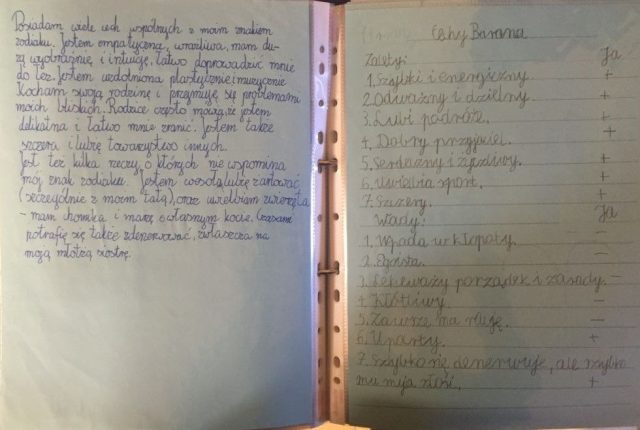 Posiadam wiele cech wspólnych z moim znakiem
zodiaku. Jestem empatyczna, wrażliwa, mam du-
żą wyobraźnię, i intuicję, łatwo doprowadzić mnie
do łez. Jestem uzdolniona plastycznie i muzycznie.
Kocham swoją rodzinę i przejmuję się problemami
moich bliskich. Rodzice często mówią, że jestem
delikatna i łatwo mnie zranić. Jestem także
szczera i lubię towarzystwo innych.
Jest też kilka rzeczy o których nie wspomina
mój znak zodiaku. Jestem wesoła, lubię żartować
(szczególnie z moim tatą), oraz uwielbiam zwierzęta
- mam chomika i marzę o własnym kocie. Czasami
potrafię się także zdenerwować, zwłaszcza na
moją młodszą siostrę.
Cechy Barana
Zalety: Ja
1. Szybki i energiczny. +
2. Odważny i dzielny. +
3. Lubi podróże. +
4. Dobry przyjaciel. +
5. Serdeczny i życzliwy. +
6. Uwielbia sport. +
7. Szczery. +
Wady: Ja
1. Wpada w kłopoty. -
2. Egoista. -
3. Lekceważy porządek i zasady. -
4. Kłótliwy. -
5. Zawsze ma rację. -
6. Uparty. +
7. Szybko się denerwuje, ale szybko
mu mija złość. +